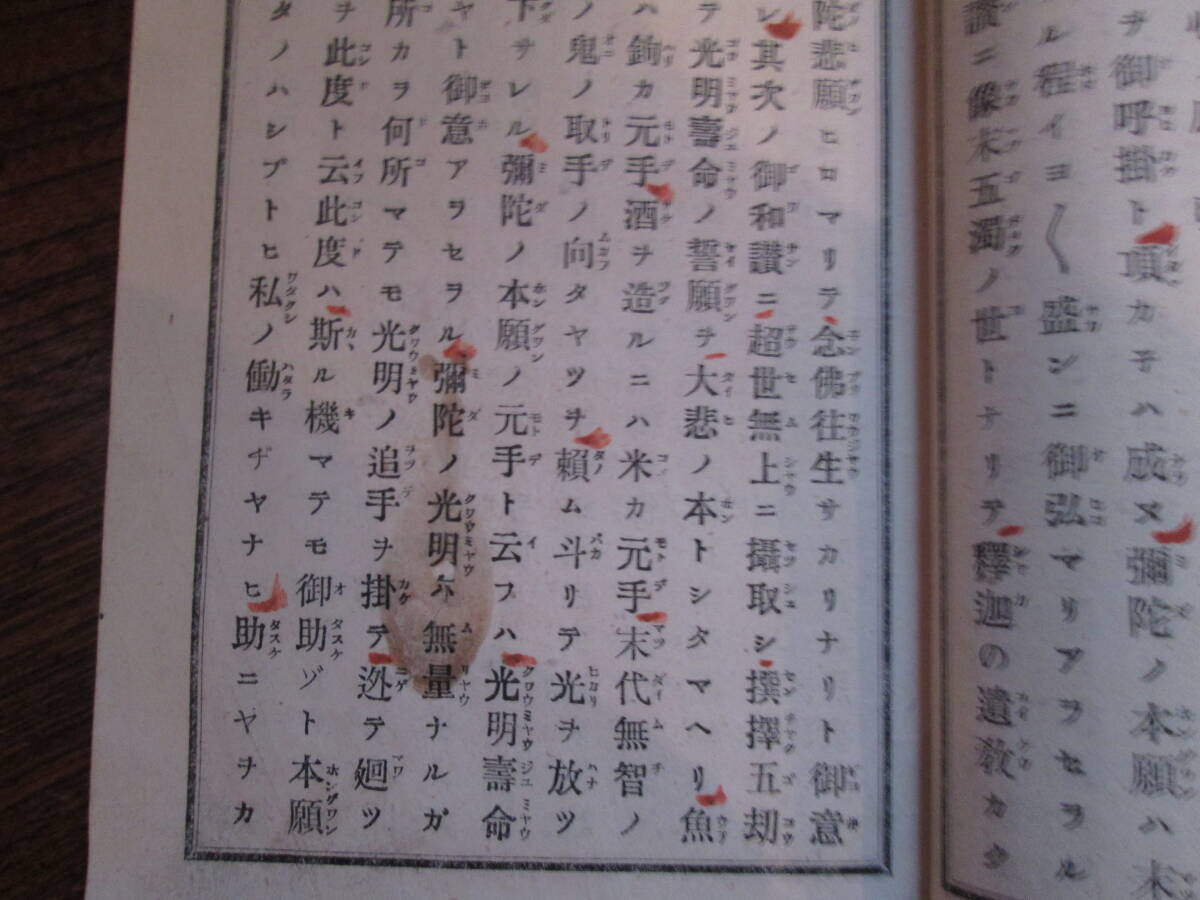 ヲ御呼掛ト頂カ子ハ成ヌ彌陀ノ本願ハ末
ル程イヨ〱盛ンニ御弘マリアヲセヲル
讃ニ像末五濁ノ世トナリテ釋迦の遺教カク
陀悲願ヒロマリテ念佛往生サカリナリト御意
レ其次ノ御和讃ニ超世無上ニ攝取シ撰擇五劫
テ光明壽命ノ誓願ヲ大悲ノ本トシタマヘリ魚
ハ鉤カ元手酒ヲ造ルニハ米カ元手末代無智ノ
ノ鬼ノ取手ノ向タヤツヲ頼ム斗リテ光ヲ放ツ
下サレル彌陀ノ本願ノ元手ト云フハ光明壽命
ヤト御意アヲセヲル彌陀ノ光明ホ無量ナルガ
所カヲ何所マテモ光明ノ追手ヲ掛テ迯テ廻ツ
ヲ此度ト云此度ハ斯ル機マテモ御助ゾト本願
タノハシプトヒ私ノ働キヂヤナヒ助ニヤヲカ